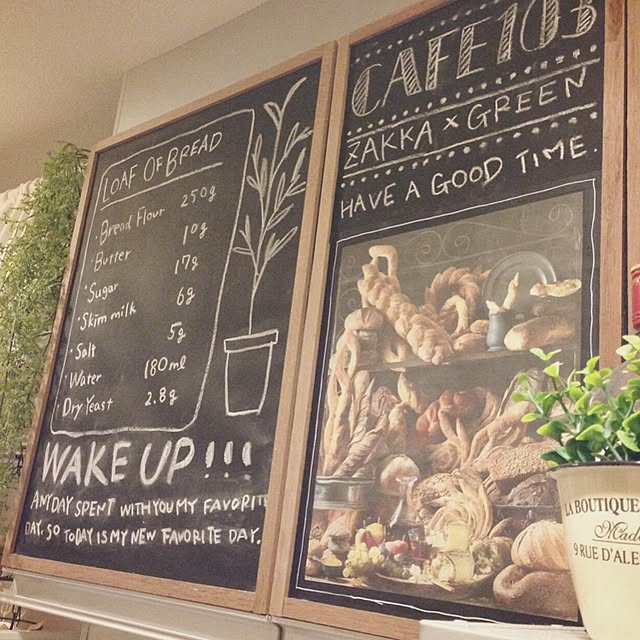 LOAF OF BREAD
· Bread Flour 250g
· Butter 10g
· Sugar 17g
· Skim milk 6g
· Salt 5g
· Water 180ml
· Dry Yeast 2.8g
WAKE UP!!!
ANY DAY SPENT WITH YOU MY FAVORIT
DAY. SO TODAY IS MY NEW FAVORITE DAY.
CAFE103
ZAKKA × GREEN
HAVE A GOOD TIME.
LA BOUTIQUE
Mad
9 RUE D'ALE